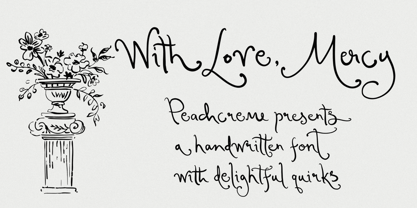 With Love, Mercy
Peachcreme presents
a handwritten font
with delightful quirks